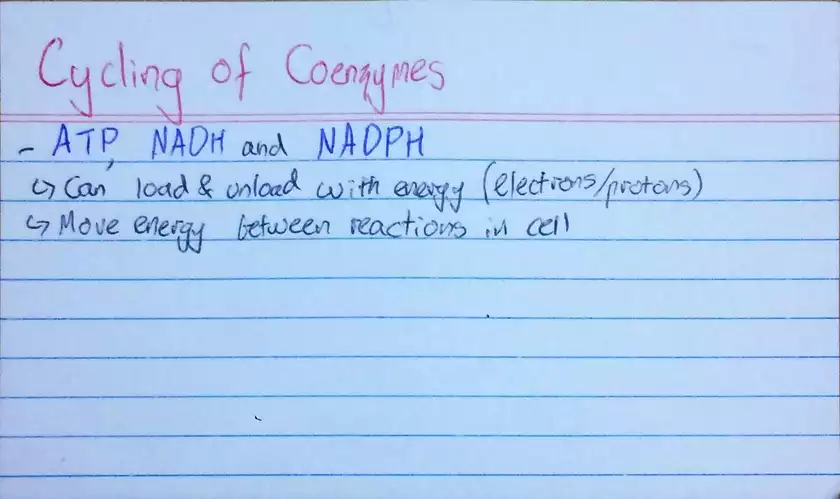 Cycling of Coenzymes
- ATP, NADH and NADPH
↳ Can load & unload with energy (electrons/protons)
↳ Move energy between reactions in cell